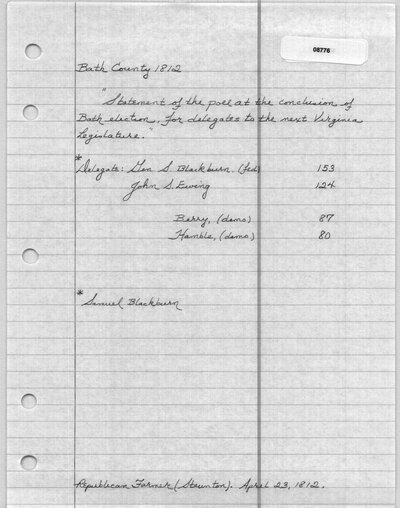 08776
Bath County 1812
"Statement of the poll at the conclusion of
Bath election, for delegates to the next Virginia
Legislature."
*Delegate: Gen S. Blackburn (fed) 153
John S. Ewing 124
Berry, (demo) 87
Hamble, (demo) 80
*Samuel Blackburn
Republican Farmer (Staunton). April 23, 1812.